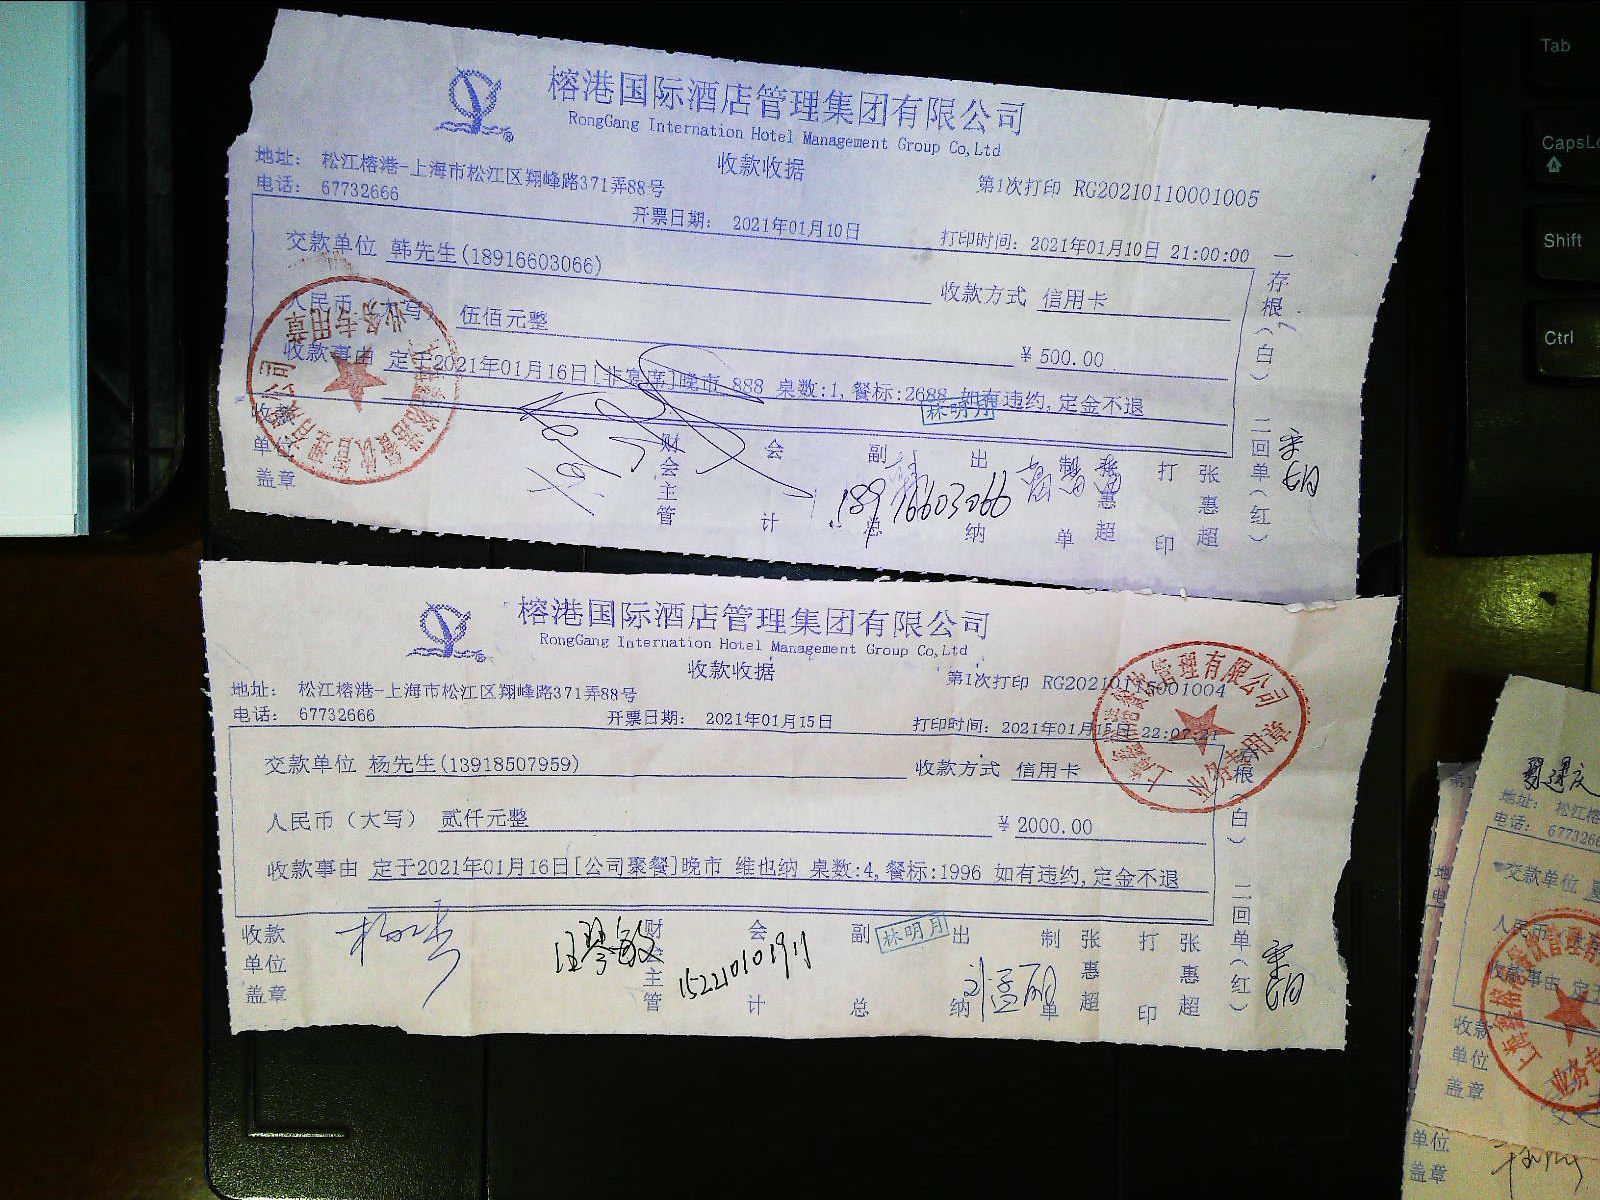 榕港国际酒店管理集团有限公司
RongGang Internation Hotel Management Group Co,Ltd
收款收据
地址： 松江榕港-上海市松江区翔峰路371弄88号
第1次打印 RG20210110001005
电话： 67732666
开票日期： 2021年01月10日
打印时间：2021年01月10日 21:00:00
交款单位 韩先生(18916603066)
收款方式 信用卡
人民币（大写） 伍佰元整
￥500.00
收款事由 定于2021年01月16日[非宴席]晚市 888 桌数:1,餐标:2688 如有违约,定金不退
林明月
收款单位盖章
财会主管 会计 副总 出纳 制单 张惠超 打印 张惠超
18916603066
一存根（白） 二回单（红）
榕港国际酒店管理集团有限公司
RongGang Internation Hotel Management Group Co,Ltd
收款收据
地址： 松江榕港-上海市松江区翔峰路371弄88号
第1次打印 RG20210115001004
电话： 67732666
开票日期： 2021年01月15日
打印时间：2021年01月15日 22:07:21
管理有限公司
业务专用章
交款单位 杨先生(13918507959)
收款方式 信用卡
人民币（大写） 贰仟元整
￥2000.00
收款事由 定于2021年01月16日[公司聚餐]晚市 维也纳 桌数:4,餐标:1996 如有违约,定金不退
收款单位盖章
财会主管 会计 副总 出纳 制单 张惠超 打印 张惠超
林明月
汪琴敏
152210101911
刘孟丽
存根（白） 二回单（红）
地址： 松江榕
电话： 6773266
交款单位
人民币（大写
收款事由 定于
收款
单位
盖章
单位
盖章
Tab
CapsLo
Shift
Ctrl